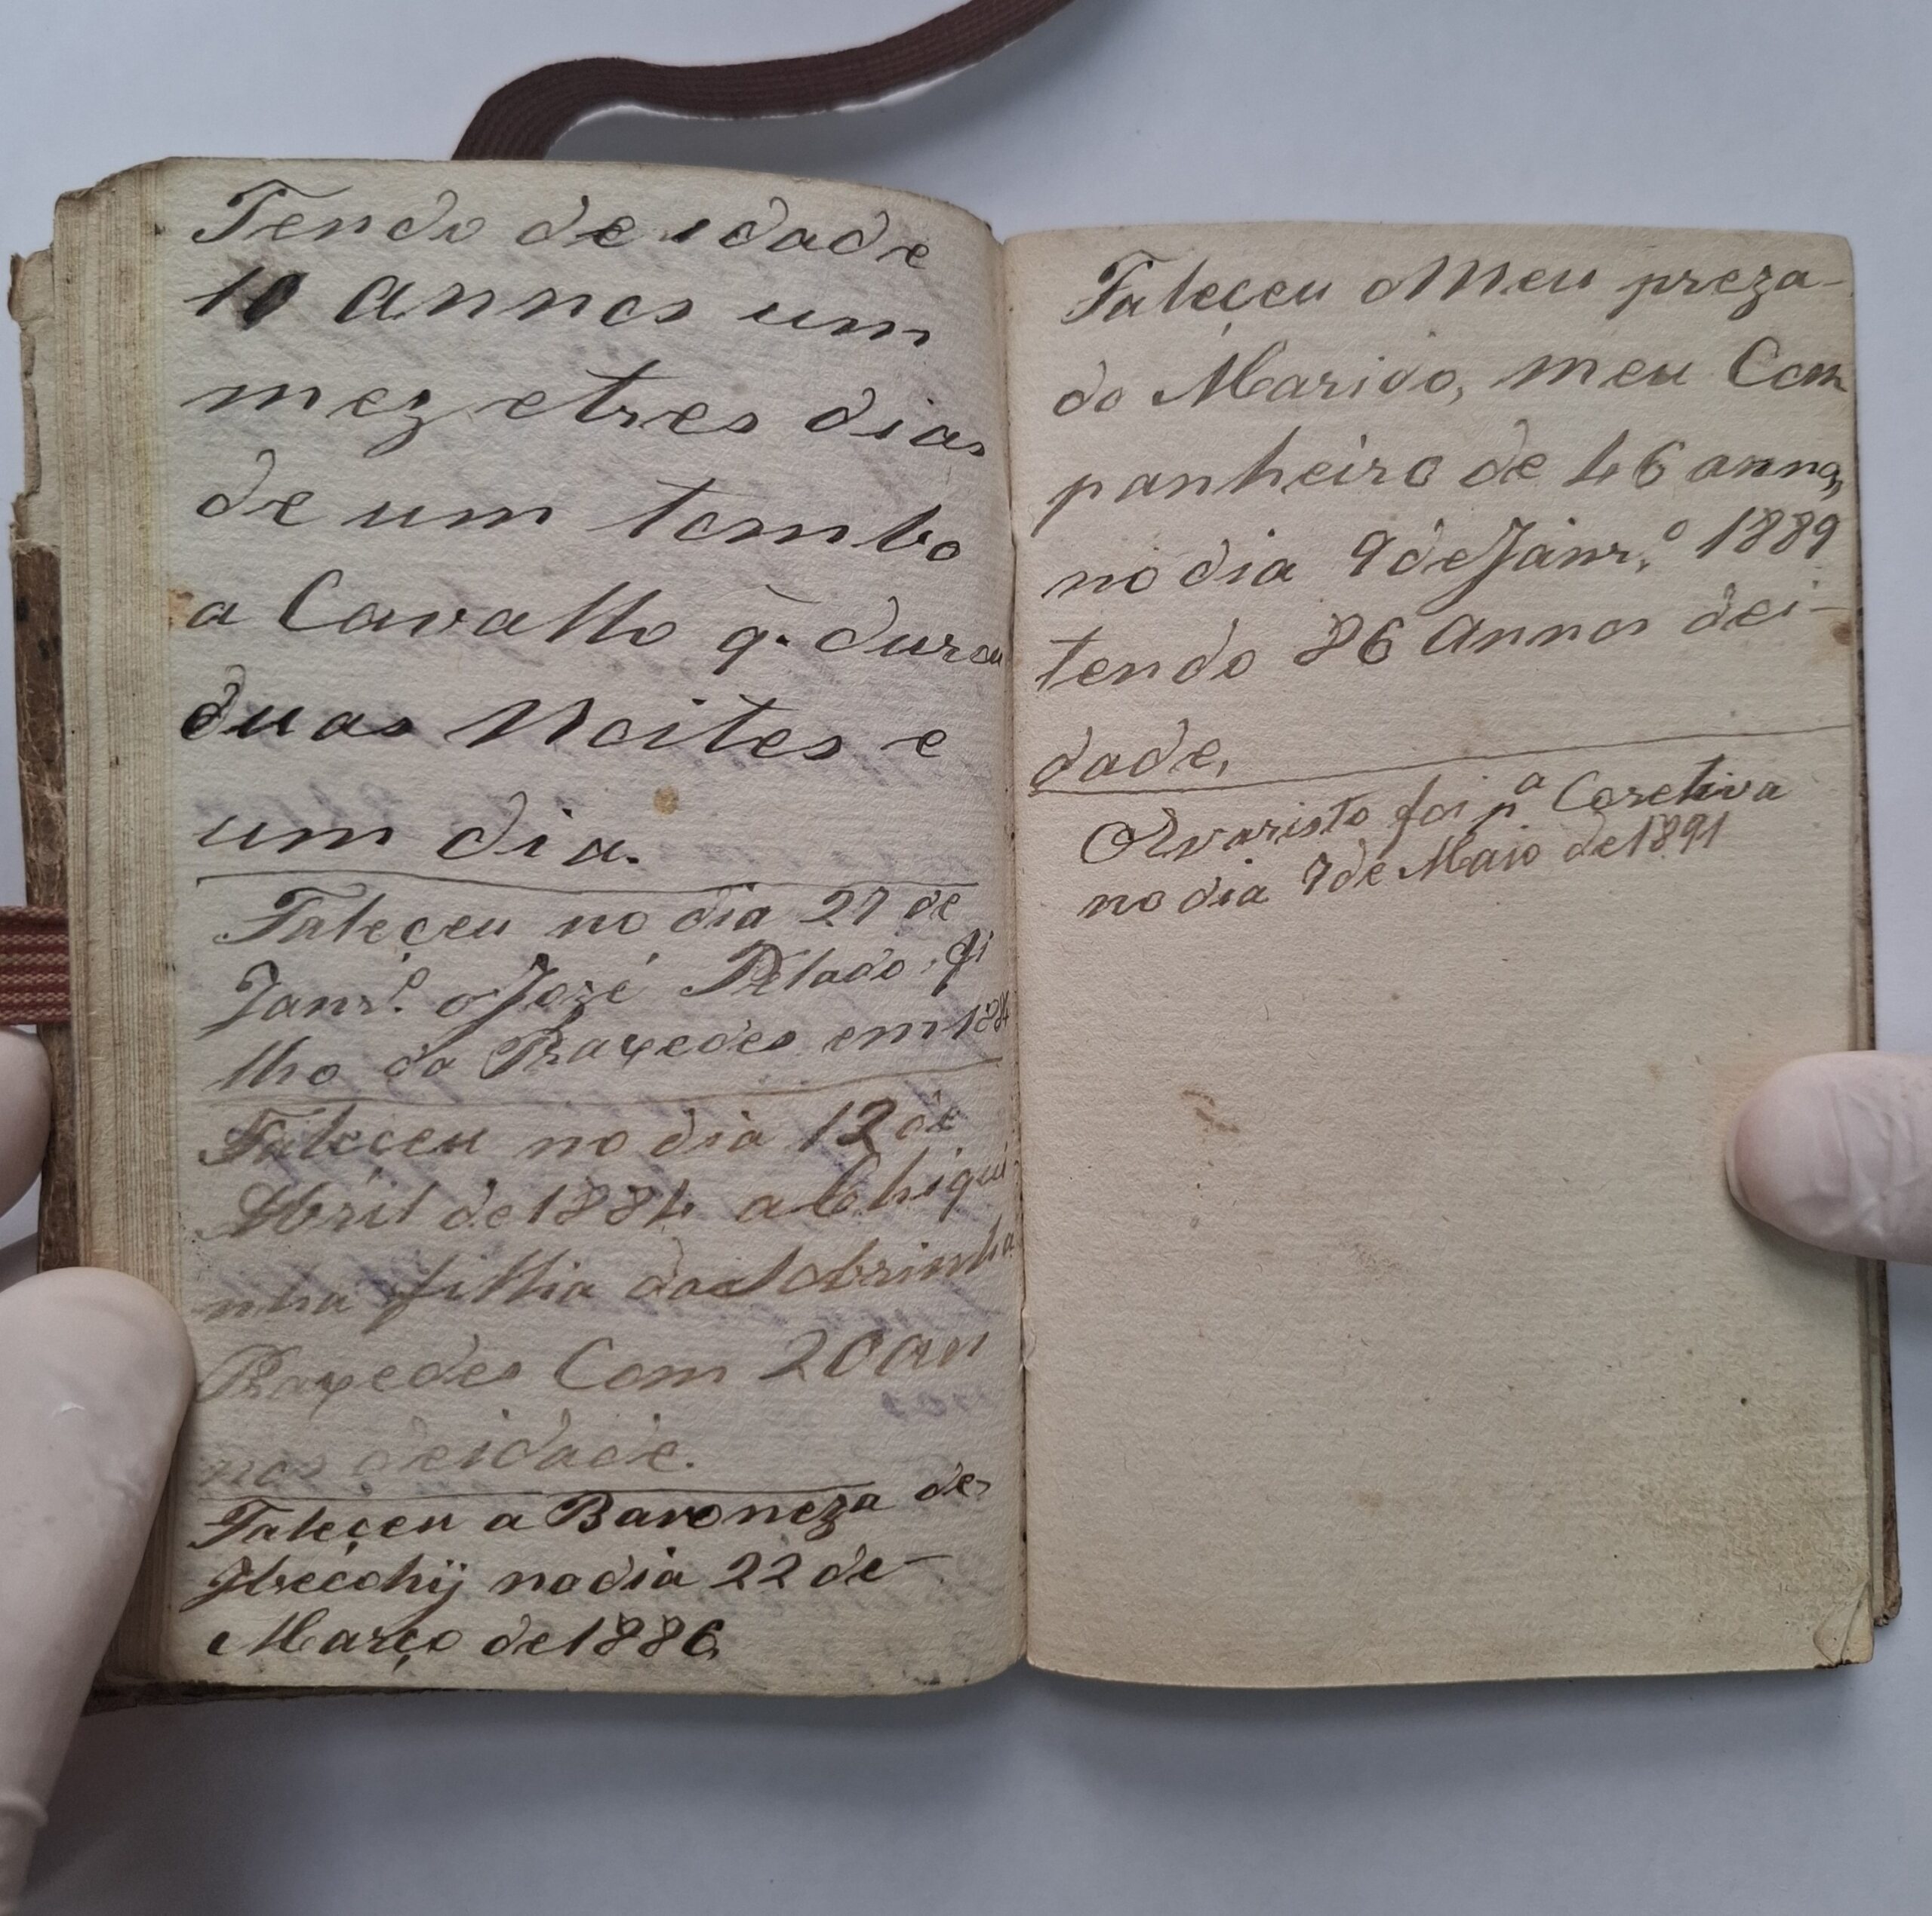 Tendo de idade
10 annos um
mez etres dias
de um tombo
a Cavallo q. durou
duas Noites e
um dia.
Faleçeu no dia 27 de
Janr.º o Jozé Pelado, fi
lho da Praxedes em 188
Faleceu no dia 12 de
Abril de 1884 a Chiqui
nha filha da Sobrinha
Praxedes Com 20 an
nos deidade.
Faleçeu a Baroneza de
no dia 22 de
Março de 1886
Faleçeu o Meu preza-
do Marido, meu Com
panheiro de 46 annos,
no dia 9 de Janr.º 1889
tendo 86 Annos dei-
dade,
Evaristo foi p.ª Coretiva
no dia 7 de Maio de 1891